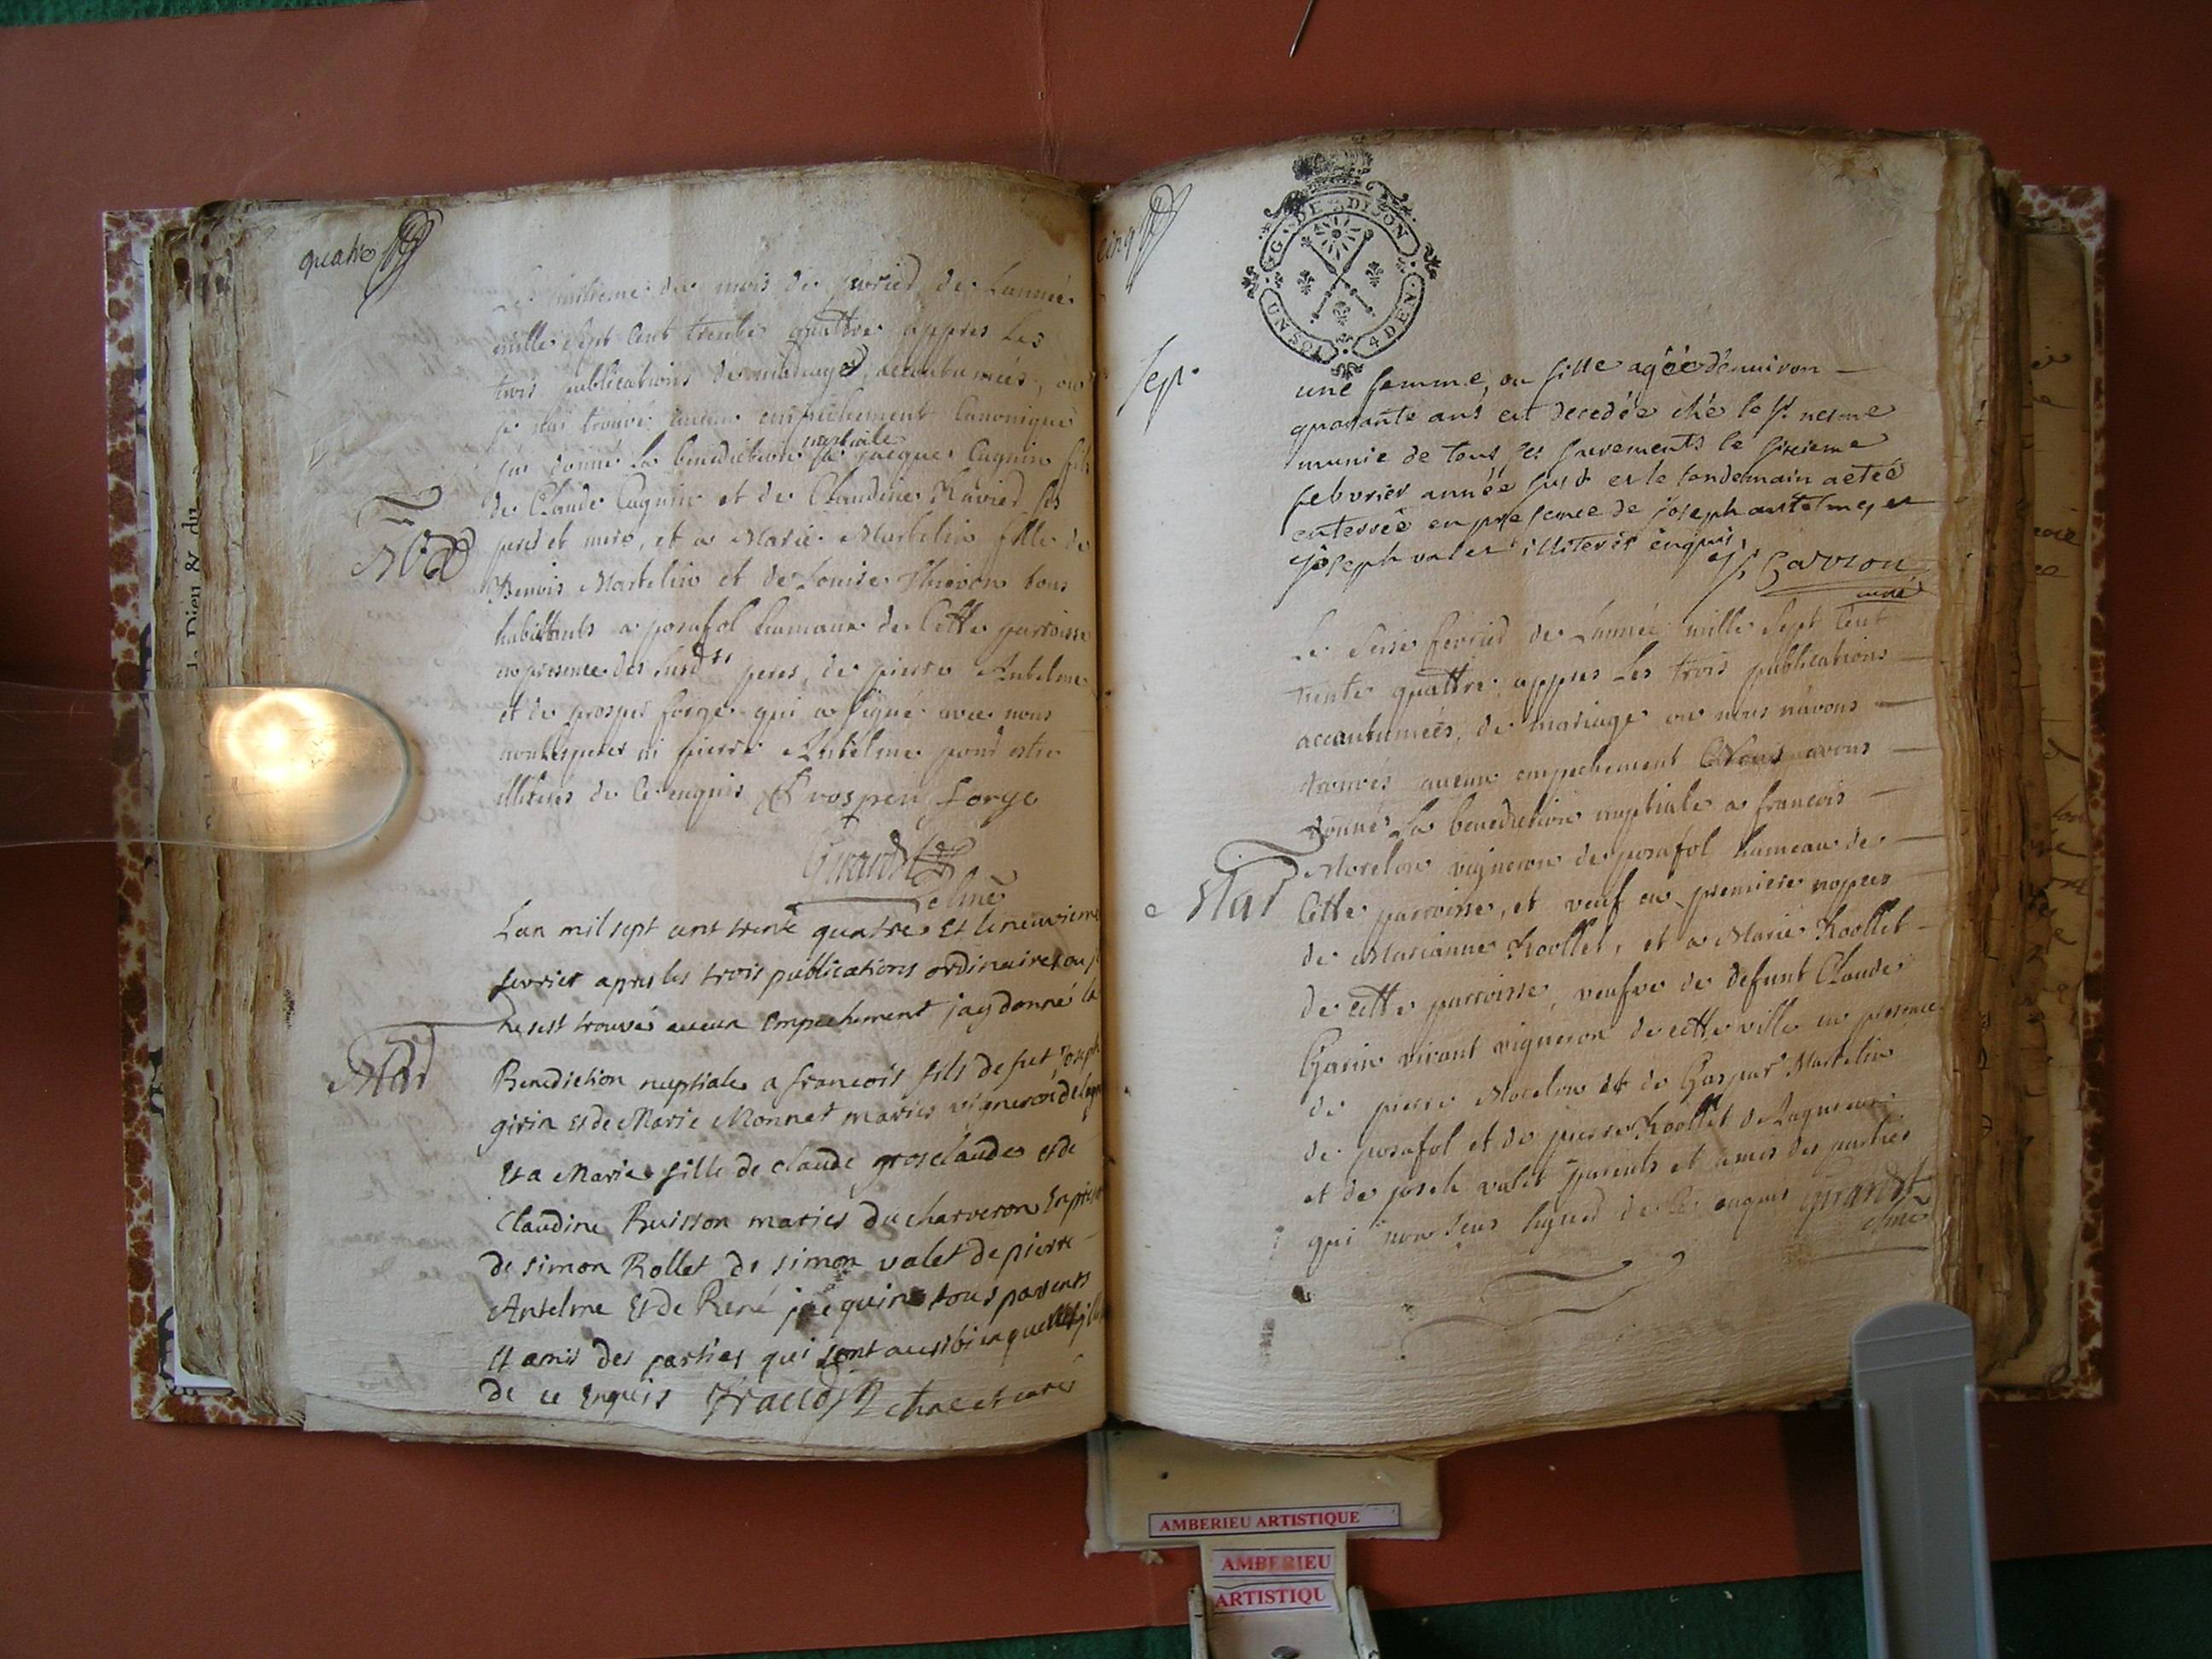 quatre
Le huitieme du mois de fevried de Lannée
mille sept cent trente quattre appres Les
trois publications de mariage accoutumées, ou
je nai trouvé aucun empechement Canonique
jai donné La benediction nuptiale a jacque Cugnin fils
de Claude Cugnin et de Claudine Ravied ses
peres et mere, et a Marie Martelin fille de
Benois Martelin et de Louise Thievon tous
habittants a posafol hameaux de Cette parroisse
en presence des susdts peres, de pierre Antelme
et de prosper forge qui a signé avec nous
non Les peres ni pierre Antelme pour estre
illiterés de Ce enquis Prosper forge
Mar
Girardet
Lan mil sept cent trente quatre Et le neuvieme
fevrier apres les trois publications ordinaires ou
ne sest trouvé aucun Empechement jay donné la
Mar
Benediction nuptiale a francois fils de fut Joseph
girin et de Marie Monnet maries vigneron
Et a Marie fille de claude grosclaude et de
Claudine Buisson maries du charveron En
de simon Rollet de simon valet de pierre
Antelme Et de René jacquin tous parents
Et amis des parties qui sont aussi bien que
de ce Enquis
cinq
Sep.
G. DE DIJON
UN SOL
4 DEN.
une femme, ou fille agée d'enuiron
quarante ans est decedée ché le sr nesme
munie de tous les sacrements le sixieme
febvrier année susd et le lendemain a eteé
enterrée en presence de joseph anthelme, et
joseph valet illiterés enquis,
curé
Le Seise fevried de Lannée mille Sept Cent
trente quattre, appres Les trois publications
accoutumées, de mariage ou nous n'avons
trouvés aucun empechement avons
donné La benediction nuptiale a francois
Morelon vigneron de posafol hameau de
Mar
Cette parroisse, et veuf en premiere noppces
de Marianne Roollet, et a Marie Roollet
de cette parroisse, veufve de defunt Claude
Garin vivant vigneron de cette ville en presence
de pierre Morelon et de Gaspar Martelin
de posafol et de pierre Roollet
et de joseh valet parents et amis des parties
qui non Seus signed de Ce enquis Girardet
AMBERIEU ARTISTIQUE
AMBERIEU
ARTISTIQU